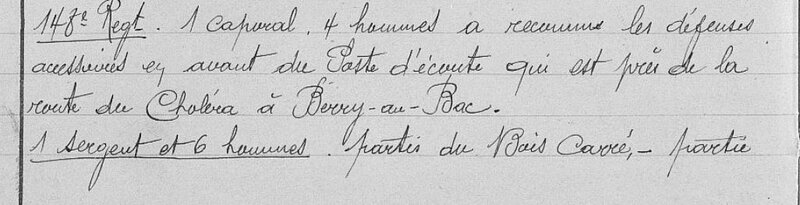 148e Regt. 1 caporal, 4 hommes a reconnu les défenses
accessoires en avant du Poste d'écoute qui est près de la
route du Choléra à Berry-au-Bac.
1 sergent et 6 hommes. partis du Bois Carré, - partie